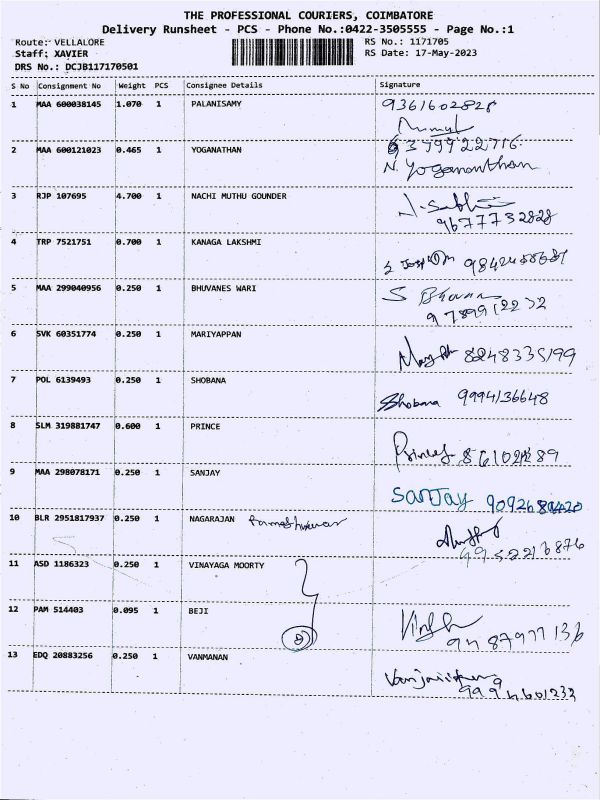 THE PROFESSIONAL COURIERS, COIMBATORE
Delivery Runsheet - PCS - Phone No.:0422-3505555 - Page No.:1
Route: VELLALORE RS No.: 1171705
Staff: XAVIER RS Date: 17-May-2023
DRS No.: DCJB117170501
S No Consignment No Weight PCS Consignee Details Signature
1 MAA 600038145 1.070 1 PALANISAMY 9361602828
2 MAA 600121023 0.465 1 YOGANATHAN 6379922716
N. Yogananthan
3 RJP 107695 4.700 1 NACHI MUTHU GOUNDER
9677732828
4 TRP 7521751 0.700 1 KANAGA LAKSHMI
5 MAA 299040956 0.250 1 BHUVANES WARI
9789912232
6 SVK 60351774 0.250 1 MARIYAPPAN
8248335199
7 POL 6139493 0.250 1 SHOBANA Shobana 9994136648
8 SLM 319881747 0.600 1 PRINCE
9 MAA 298078171 0.250 1 SANJAY
SANJAY
10 BLR 2951817937 0.250 1 NAGARAJAN
11 ASD 1186323 0.250 1 VINAYAGA MOORTY
12 PAM 514403 0.095 1 BEJI
13 EDQ 20883256 0.250 1 VANMANAN